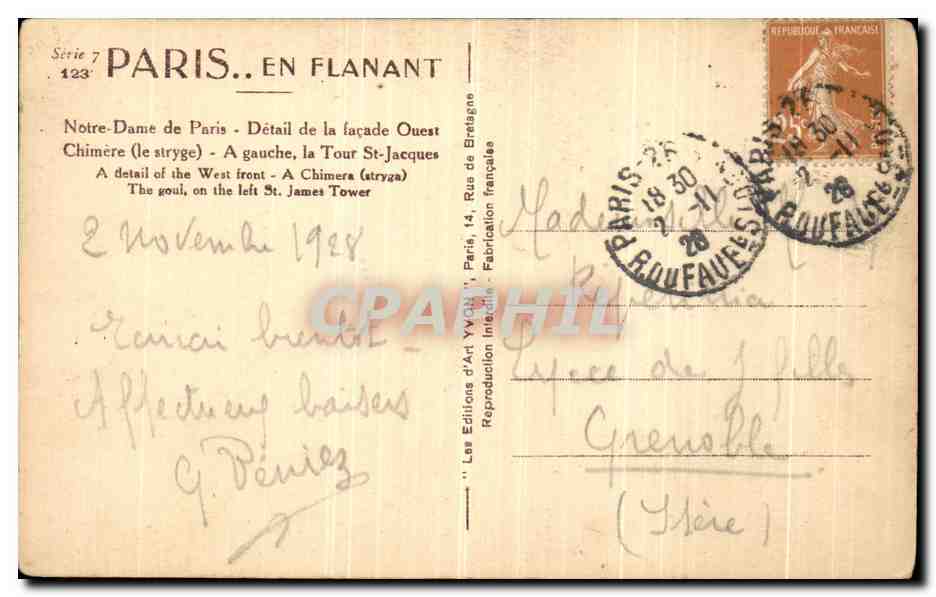 Série 7
123
PARIS.. EN FLANANT
Notre-Dame de Paris - Détail de la façade Ouest
Chimère (le stryge) - A gauche, la Tour St-Jacques
A detail of the West front - A Chimera (stryga)
The goul, on the left St. James Tower
2 Novembre 1928
bientôt -
Affectueux baisers
G.
" Les Editions d'Art YVON ", Paris, 14, Rue de Bretagne
Reproduction Interdite - Fabrication française
REPUBLIQUE FRANÇAISE
25c
PARIS-25
18 30
2 -11
28
R. DU FAUBG ST DENIS
PARIS-25
18 30
2 -11
28
R. DU FAUBG
Mademoiselle
Lycée de J filles
Grenoble
(Isère)
CPAPHIL